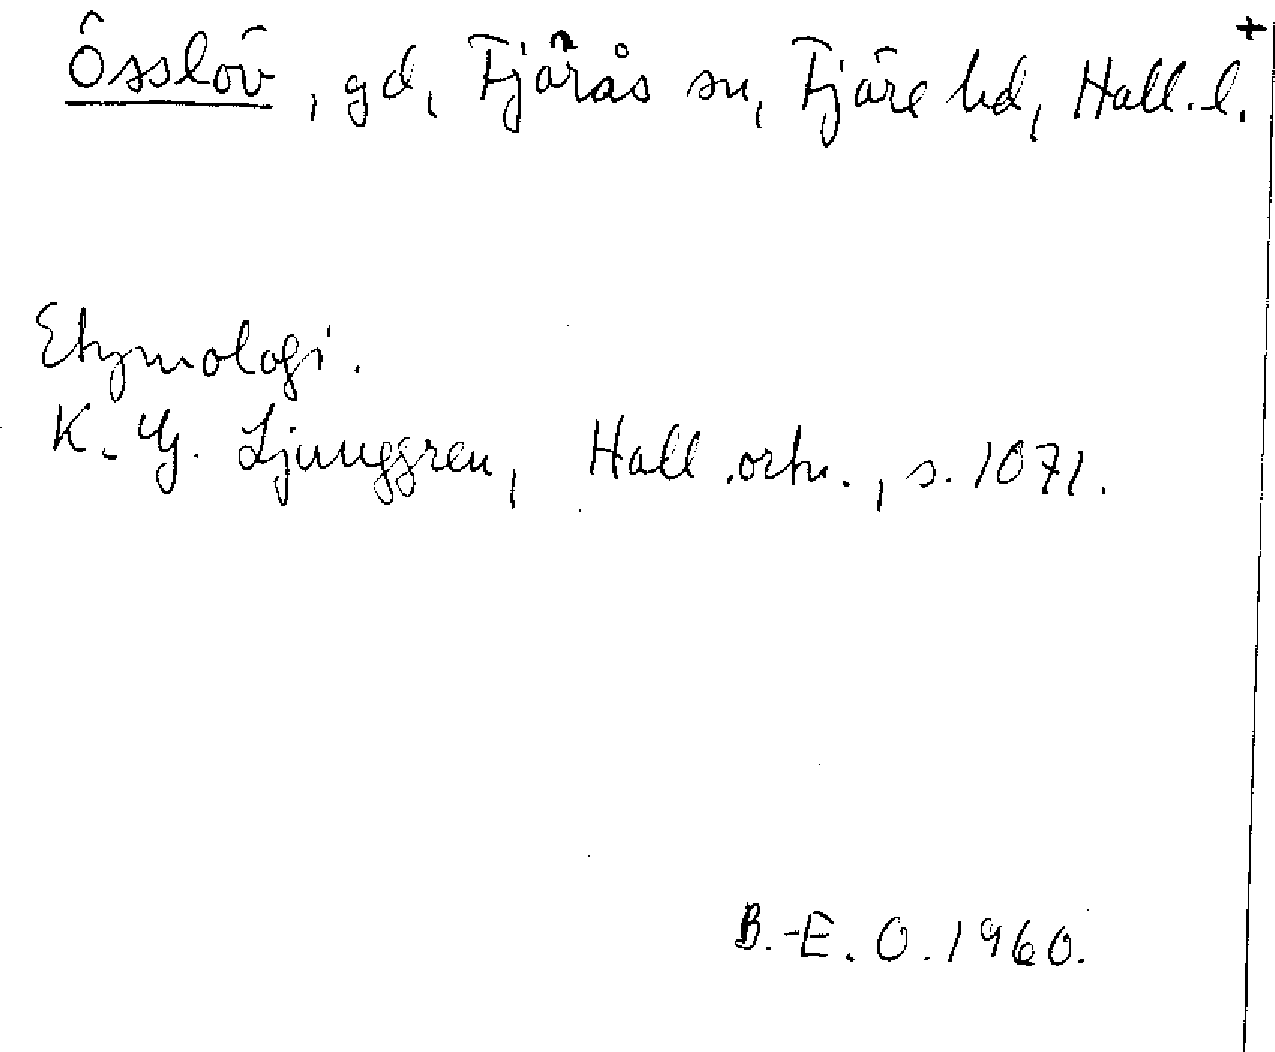 +
Össlöv, gd, Fjärås sn, Fjäre hd, Hall. l.
Etymologi.
K.-G. Ljunggren, Hall. ortn., s. 1071.
B.-E. O. 1960.